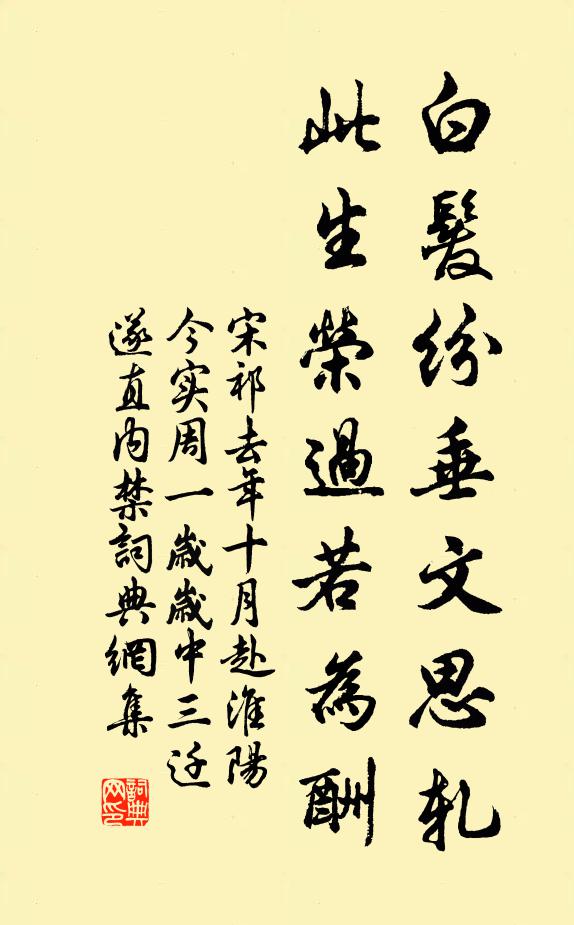 白髮紛垂文思軋
此生榮過若為酬
宋祁去年十月赴淮陽
今实周一歲歲中三迁
遂直内禁詞典網集
詞典网印